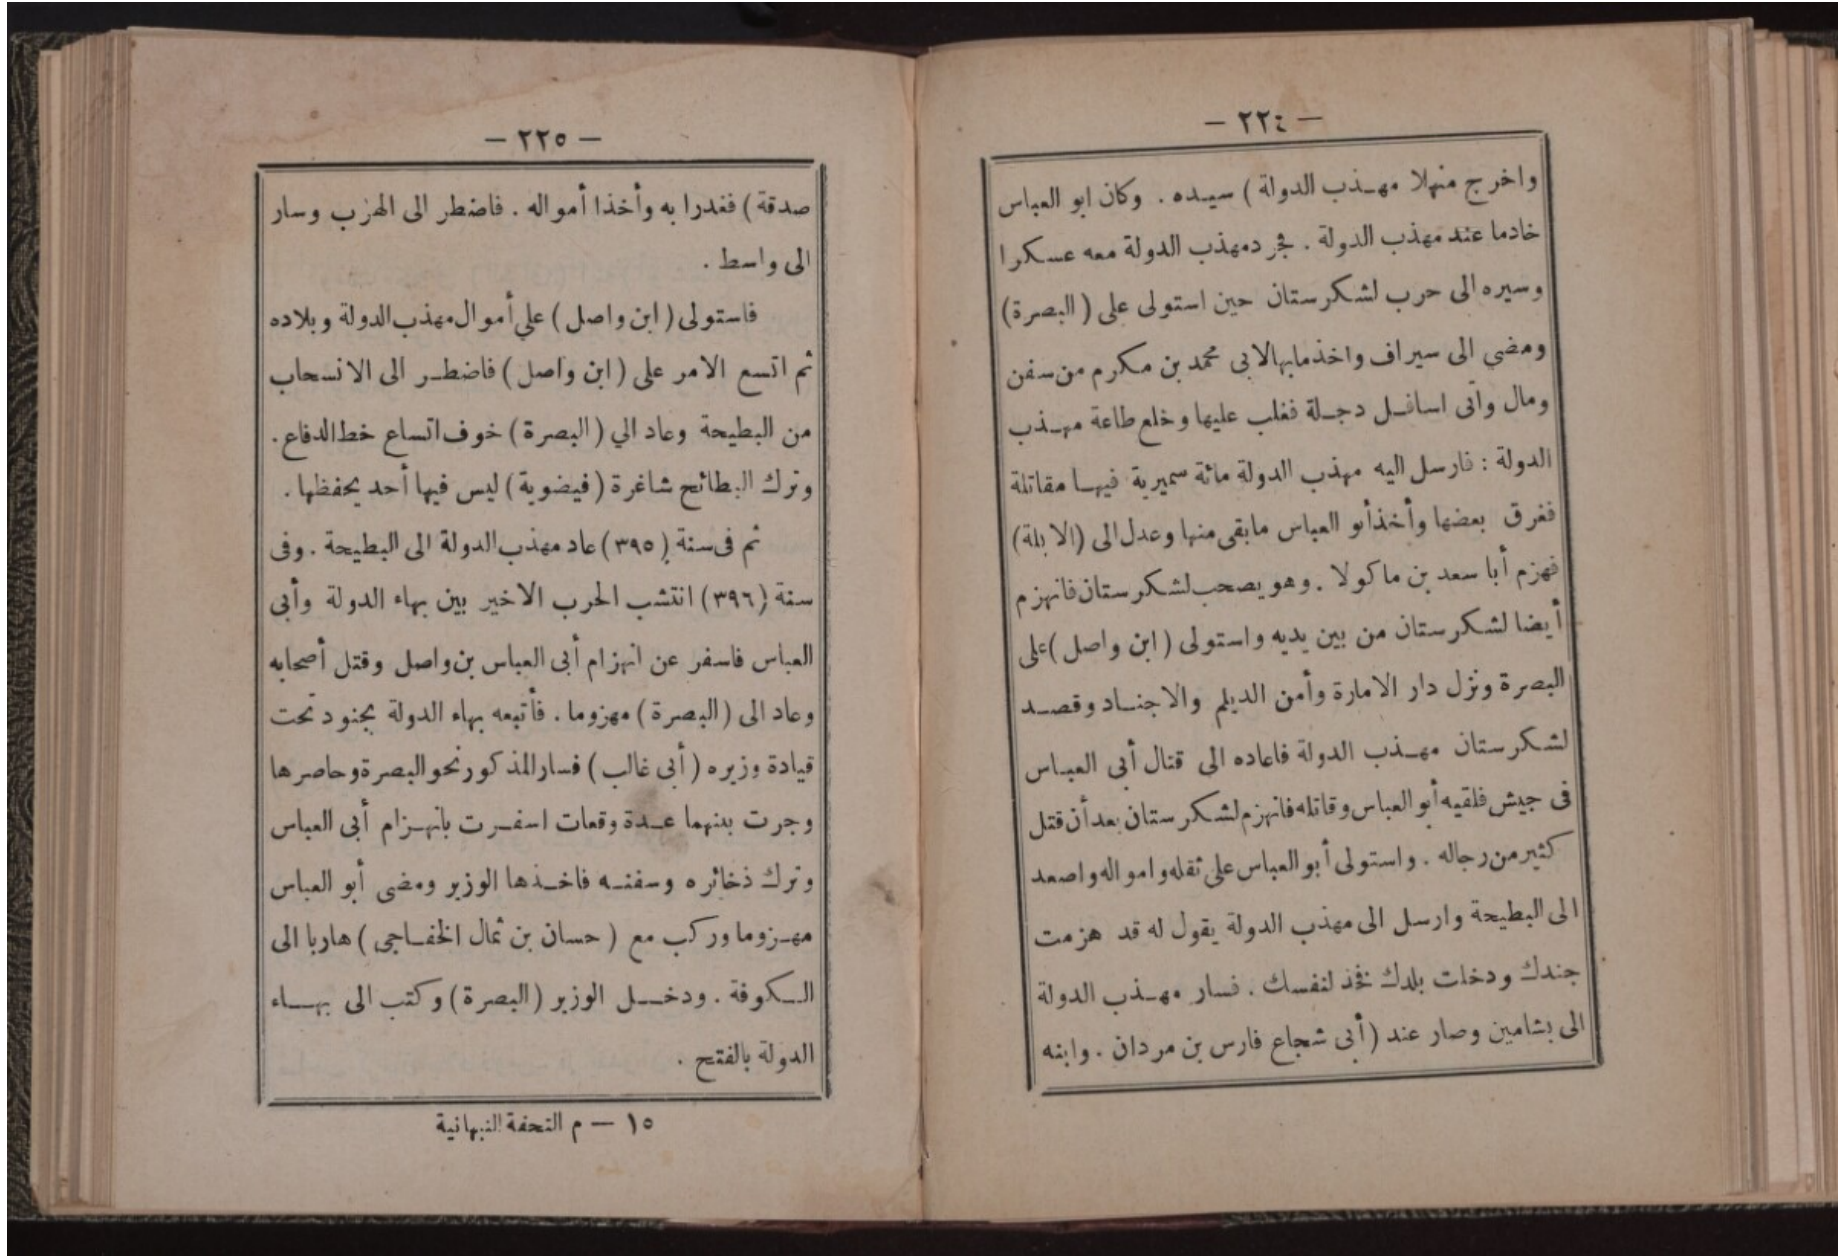 — ٢٢٤ —
واخرج منهلا مهذب الدولة ) سيده . وكان ابو العباس
خادما عند مهذب الدولة . فجرد مهذب الدولة معه عسكرا
وسيره الى حرب لشكرستان حين استولى على ( البصرة )
ومضي الى سيراف واخذ مابها لابى محمد بن مكرم من سفن
ومال وأتى اسافل دجلة فغلب عليها وخلع طاعة مهذب
الدولة : فارسل اليه مهذب الدولة مائة سميرية فيها مقاتلة
فغرق بعضها وأخذ أبو العباس مابقى منها وعدل الى (الابلة)
فهزم أبا سعد بن ماكولا . وهو يصحب لشكرستان فانهزم
أيضا لشكرستان من بين يديه واستولى ( ابن واصل ) على
البصرة ونزل دار الامارة وأمن الديلم والاجناد وقصد
لشكرستان مهذب الدولة فاعاده الى قتال أبى العباس
فى جيش فلقيه أبو العباس وقاتله فانهزم لشكرستان بعد أن قتل
كثير من رجاله . واستولى أبو العباس على ثقله وامواله واصعد
الى البطيحة وارسل الى مهذب الدولة يقول له قد هزمت
جندك ودخلت بلدك فخذ لنفسك . فسار مهذب الدولة
الى بشامين وصار عند ( أبى شجاع فارس بن مردان . وابنه
— ٢٢٥ —
صدقة ) فغدرا به وأخذا أمواله . فاضطر الى الهرب وسار
الى واسط .
فاستولى ( ابن واصل ) علي أموال مهذب الدولة وبلاده
ثم اتسع الامر على ( ابن واصل ) فاضطر الى الانسحاب
من البطيحة وعاد الي ( البصرة ) خوف اتساع خط الدفاع .
وترك البطائح شاغرة ( فيضوية ) ليس فيها أحد يحفظها .
ثم فى سنة (٣٩٥) عاد مهذب الدولة الى البطيحة . وفى
سنة (٣٩٦) انتشب الحرب الاخير بين بهاء الدولة وأبى
العباس فاسفر عن انهزام أبى العباس بن واصل وقتل أصحابه
وعاد الى ( البصرة ) مهزوما . فأتبعه بهاء الدولة بجنود تحت
قيادة وزيره ( أبى غالب ) فسار المذكور نحو البصرة وحاصرها
وجرت بينهما عدة وقعات اسفرت بانهزام أبى العباس
وترك ذخائره وسفنه فاخذها الوزير ومضى أبو العباس
مهزوما وركب مع ( حسان بن ثمال الخفاجى ) هاربا الى
الكوفة . ودخل الوزير ( البصرة ) وكتب الى بهاء
الدولة بالفتح .
١٥ — م التحفة النبهانية